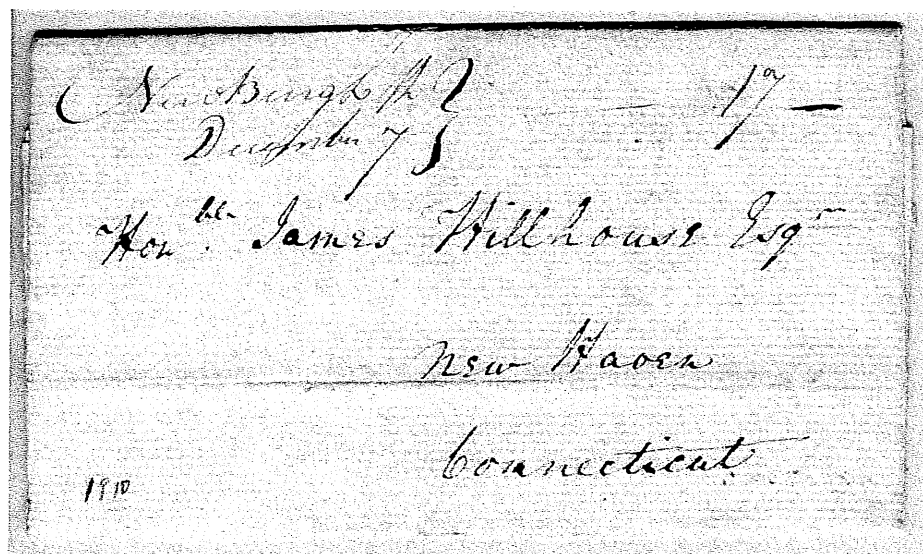 NewBurgh 17
December 7
Hon.ble James Hillhouse Esqr
New Haven
Connecticut
1910